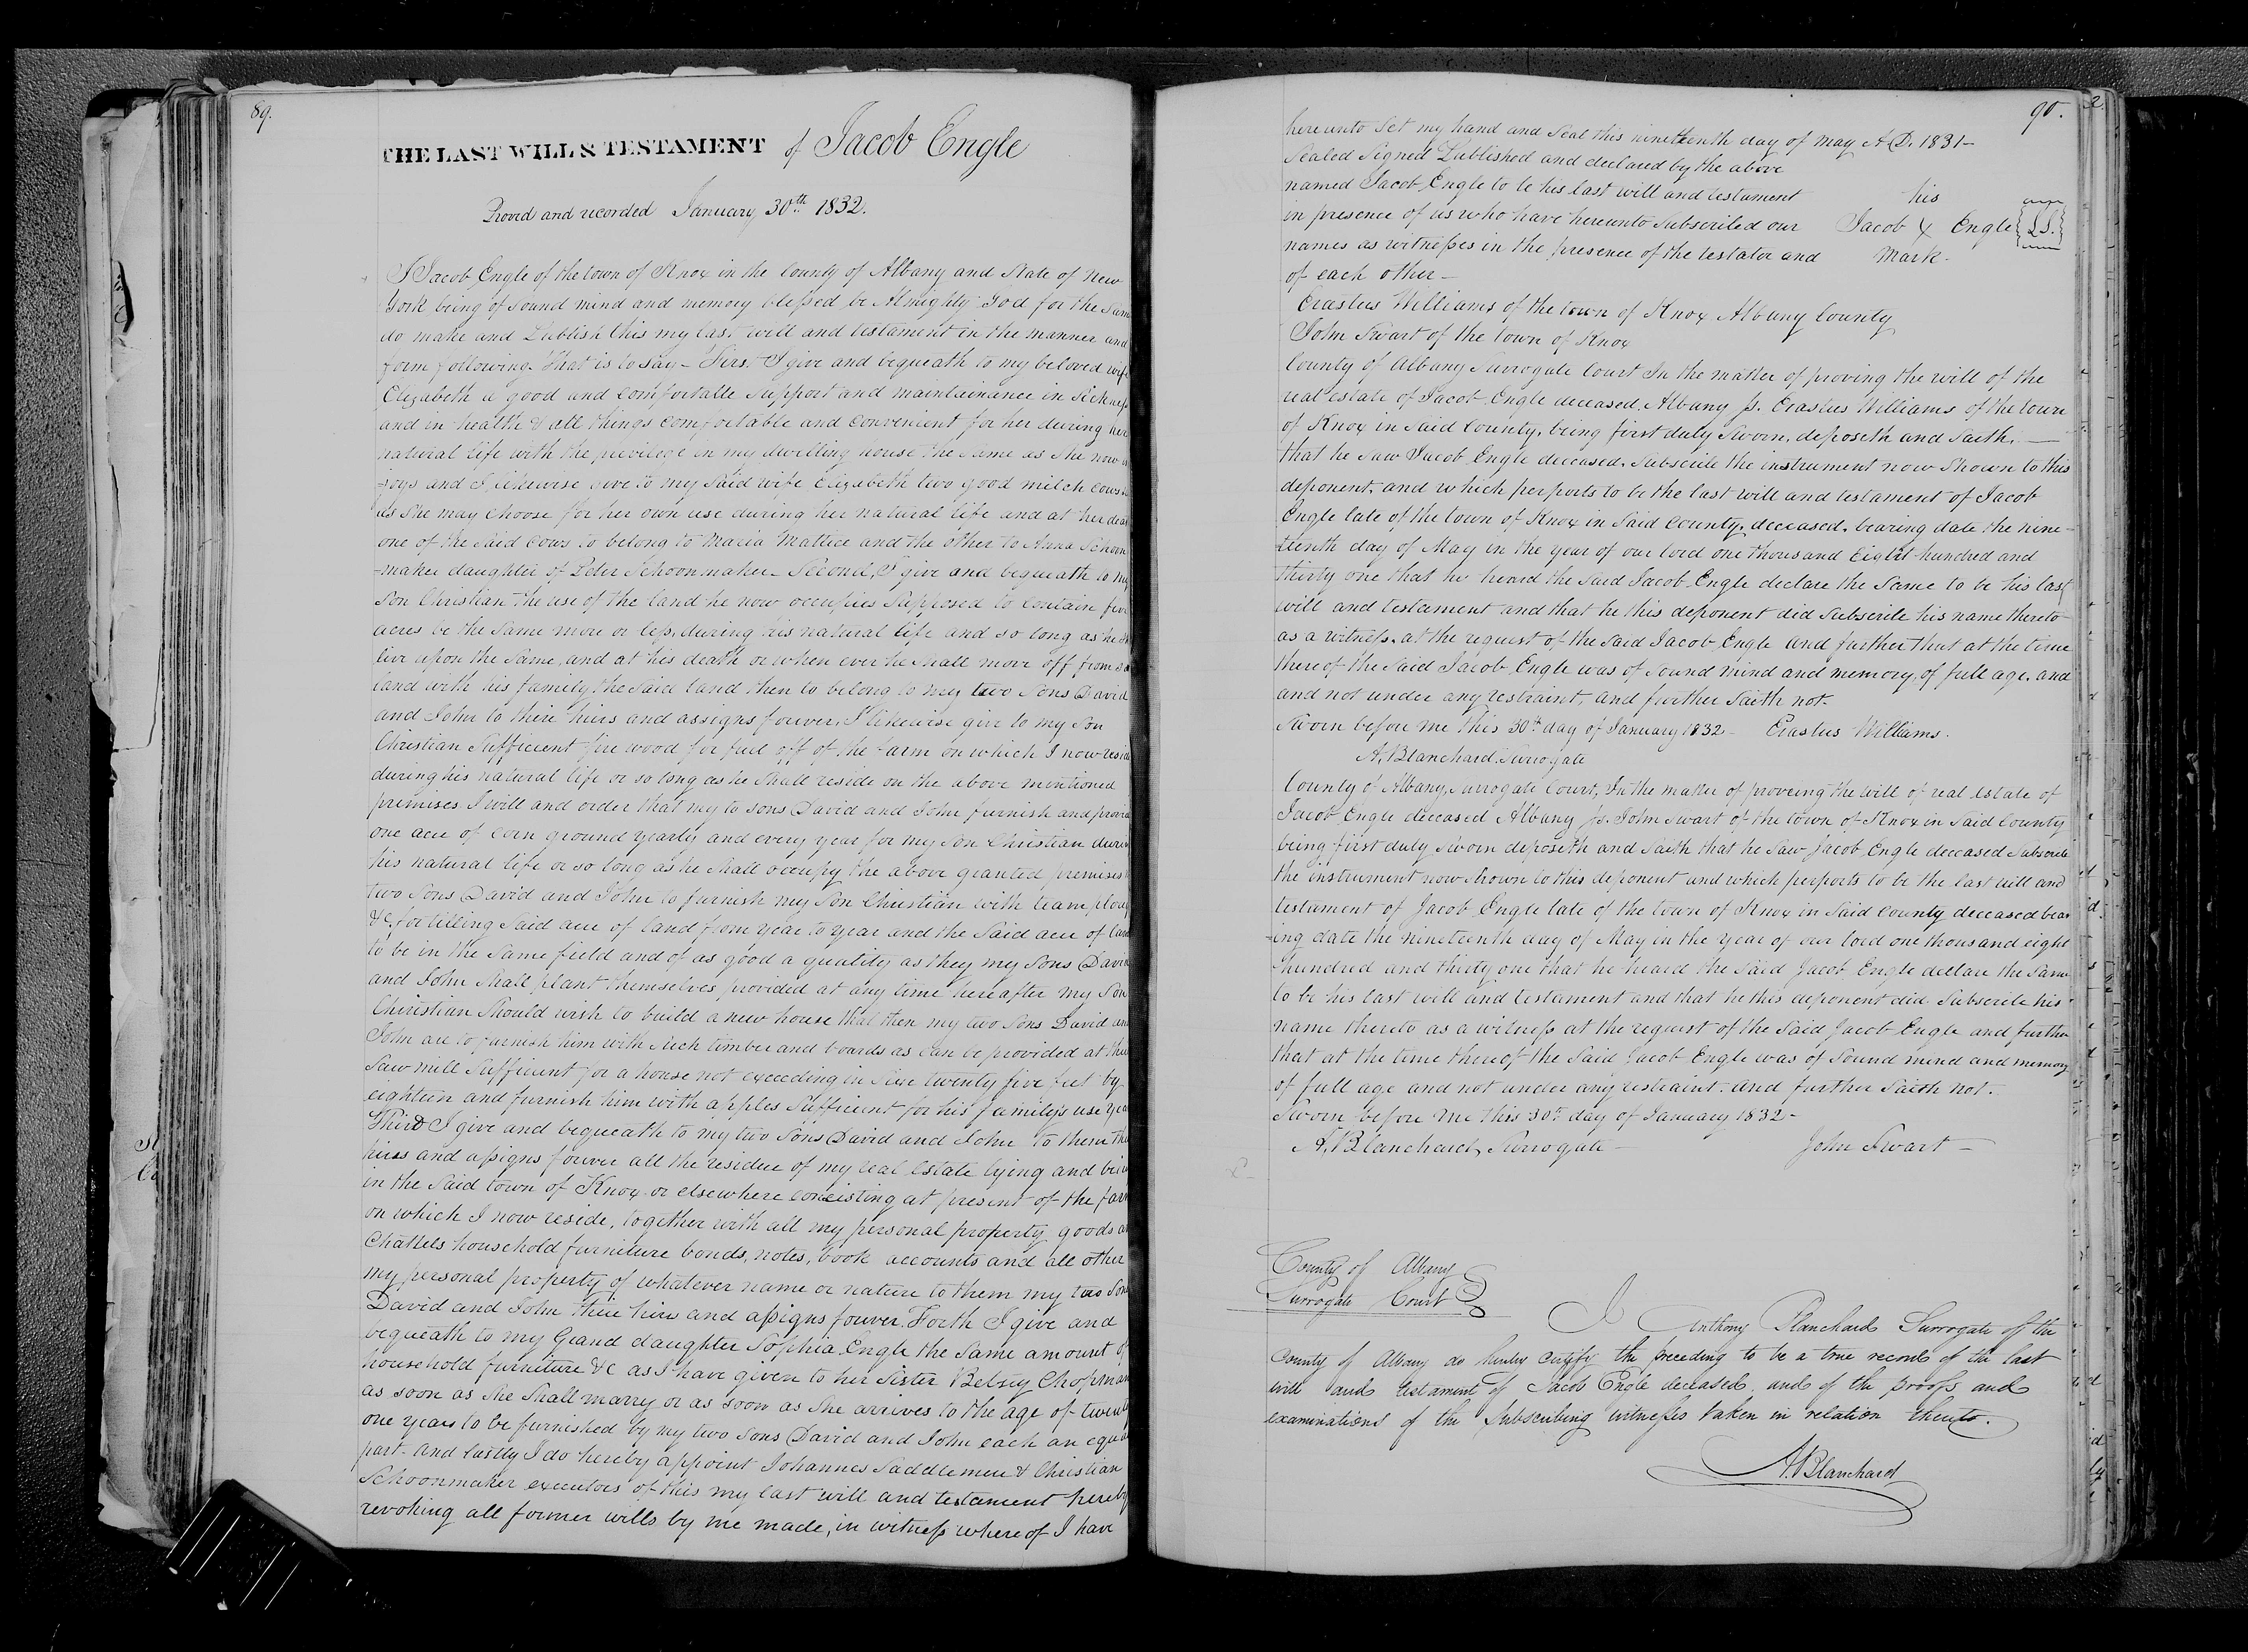 89.
THE LAST WILL & TESTAMENT of Jacob Engle
Proved and recorded January 30th 1832.
I Jacob Engle of the town of Knox in the County of Albany and State of New
York being of sound mind and memory blessed be Almighty God for the Same
do make and Publish this my last will and testament in the manner and
form following. That is to say – First I give and bequeath to my beloved wife
Elizabeth a good and comfortable support and maintainance in Sickness
and in health & all things comfortable and convenient for her during her
natural life with the privilege in my dwelling house the same as She now
-joys and I likewise give to my Said wife Elizabeth two good milch cows
as She may choose for her own use during her natural life and at her
one of the said cows to belong to Maria Mattice and the other to Anna Schoon
-maker daughter of Peter Schoonmaker – Second, I give and bequeath to my
Son Christian the use of the land he now occupies Supposed to contain five
acres be the same more or less, during his natural life and so long as he
live upon the same, and at his death or when ever he shall move off from
land with his family the said land then to belong to my two Sons David
and John to thire hiers and assigns forever, I likewise give to my Son
Christian Sufficient fire wood for fuel off of the farm on which I now
during his natural life or so long as he shall reside on the above mentioned
premises I will and order that my to sons David and John furnish and
one acre of corn ground yearly and every year for my Son Christian
his natural life or so long as he shall occupy the above granted premises
two Sons David and John to furnish my Son Christian with team
&c for tilling Said acre of land from year to year and the said acre of
to be in the same field and of as good a quality as they my sons David
and John shall plant themselves provided at any time hereafter my Son
Christian Should wish to build a new house that then my two Sons David and
John are to furnish him with such timber and boards as can be provided at
Saw mill Sufficient for a house not exceeding in size twenty five feet by
eighteen and furnish him with apples sufficient for his family's use
Third I give and bequeath to my two sons David and John to them
hiers and assigns forever all the residue of my real estate lying and
in the Said town of Knox or elsewhere consisting at present of the
on which I now reside, together with all my personal property goods
Chattels household furniture bonds, notes, book accounts and all other
my personal property of whatever name or nature to them my two Sons
David and John thire hiers and assigns forever. Forth I give and
bequeath to my Grand daughter Sophia Engle the same amount of
household furniture &c as I have given to her sister Betsey Chapman
as soon as She Shall marry or as soon as She arrives to the age of twenty
one years to be furnished by my two Sons David and John each an equal
part – And lastly I do hereby appoint Johannes Saddlemire & Christian
Schoonmaker executors of this my last will and testament hereby
revoking all former wills by me made, in witness where of I have
90.
hereunto Set my hand and Seal this nineteenth day of May A.D. 1831–
Sealed Signed Published and declared by the above
named Jacob Engle to be his last will and testament his
in presence of us who have hereunto Subscribed our Jacob X Engle {L.S.}
names as witnesses in the presence of the testator and Mark –
of each other –
Erastus Williams of the town of Knox Albany County
John Swart of the town of Knox
County of Albany Surrogate Court In the matter of proving the will of the
real estate of Jacob Engle deceased, Albany ss. Erastus Williams of the town
of Knox in Said County, being first duly Sworn, deposeth and Saith, —
that he saw Jacob Engle deceased, Subscribe the instrument now Shown to this
deponent, and which perports to be the last will and testament of Jacob
Engle late of the town of Knox in Said County, deceased, bearing date the nine-
-teenth day of May in the year of our lord one thousand Eight hundred and
thirty one that he heard the Said Jacob Engle declare the Same to be his last
will and testament and that he this deponent did Subscribe his name thereto
as a witness, at the request of the Said Jacob Engle and further that at the time
there of the Said Jacob Engle was of Sound mind and memory, of full age, and
and not under any restraint, and further Saith not.
Sworn before me this 30th day of January 1832 – Erastus Williams.
A. Blanchard Surrogate
County of Albany, Surrogate Court, In the matter of proveing the will of real estate of
Jacob Engle deceased Albany ss. John Swart of the town of Knox in Said County
being first duly Sworn deposeth and Saith that he saw Jacob Engle deceased Subscribe
the instrument now Shown to this deponent and which perports to be the last will and
testament of Jacob Engle late of the town of Knox in Said County deceased bear
-ing date the nineteenth day of May in the year of our lord one thousand eight
hundred and thirty one that he heard the Said Jacob Engle declare the Same
to be his last will and testament and that he this deponent did Subscribe his
name thereto as a witness at the request of the Said Jacob Engle and further
that at the time thereof the Said Jacob Engle was of Sound mind and memory
of full age and not under any restraint. and further Saith not.
Sworn before me this 30th day of January 1832 –
A. Blanchard, Surrogate – John Swart –
County of Albany
Surrogate Court
I Anthony Blanchard Surrogate of the
County of Albany do hereby certify the preceding to be a true record of the last
will and testament of Jacob Engle deceased and of the proofs and
examinations of the subscribing witnesses taken in relation thereto.
A. Blanchard